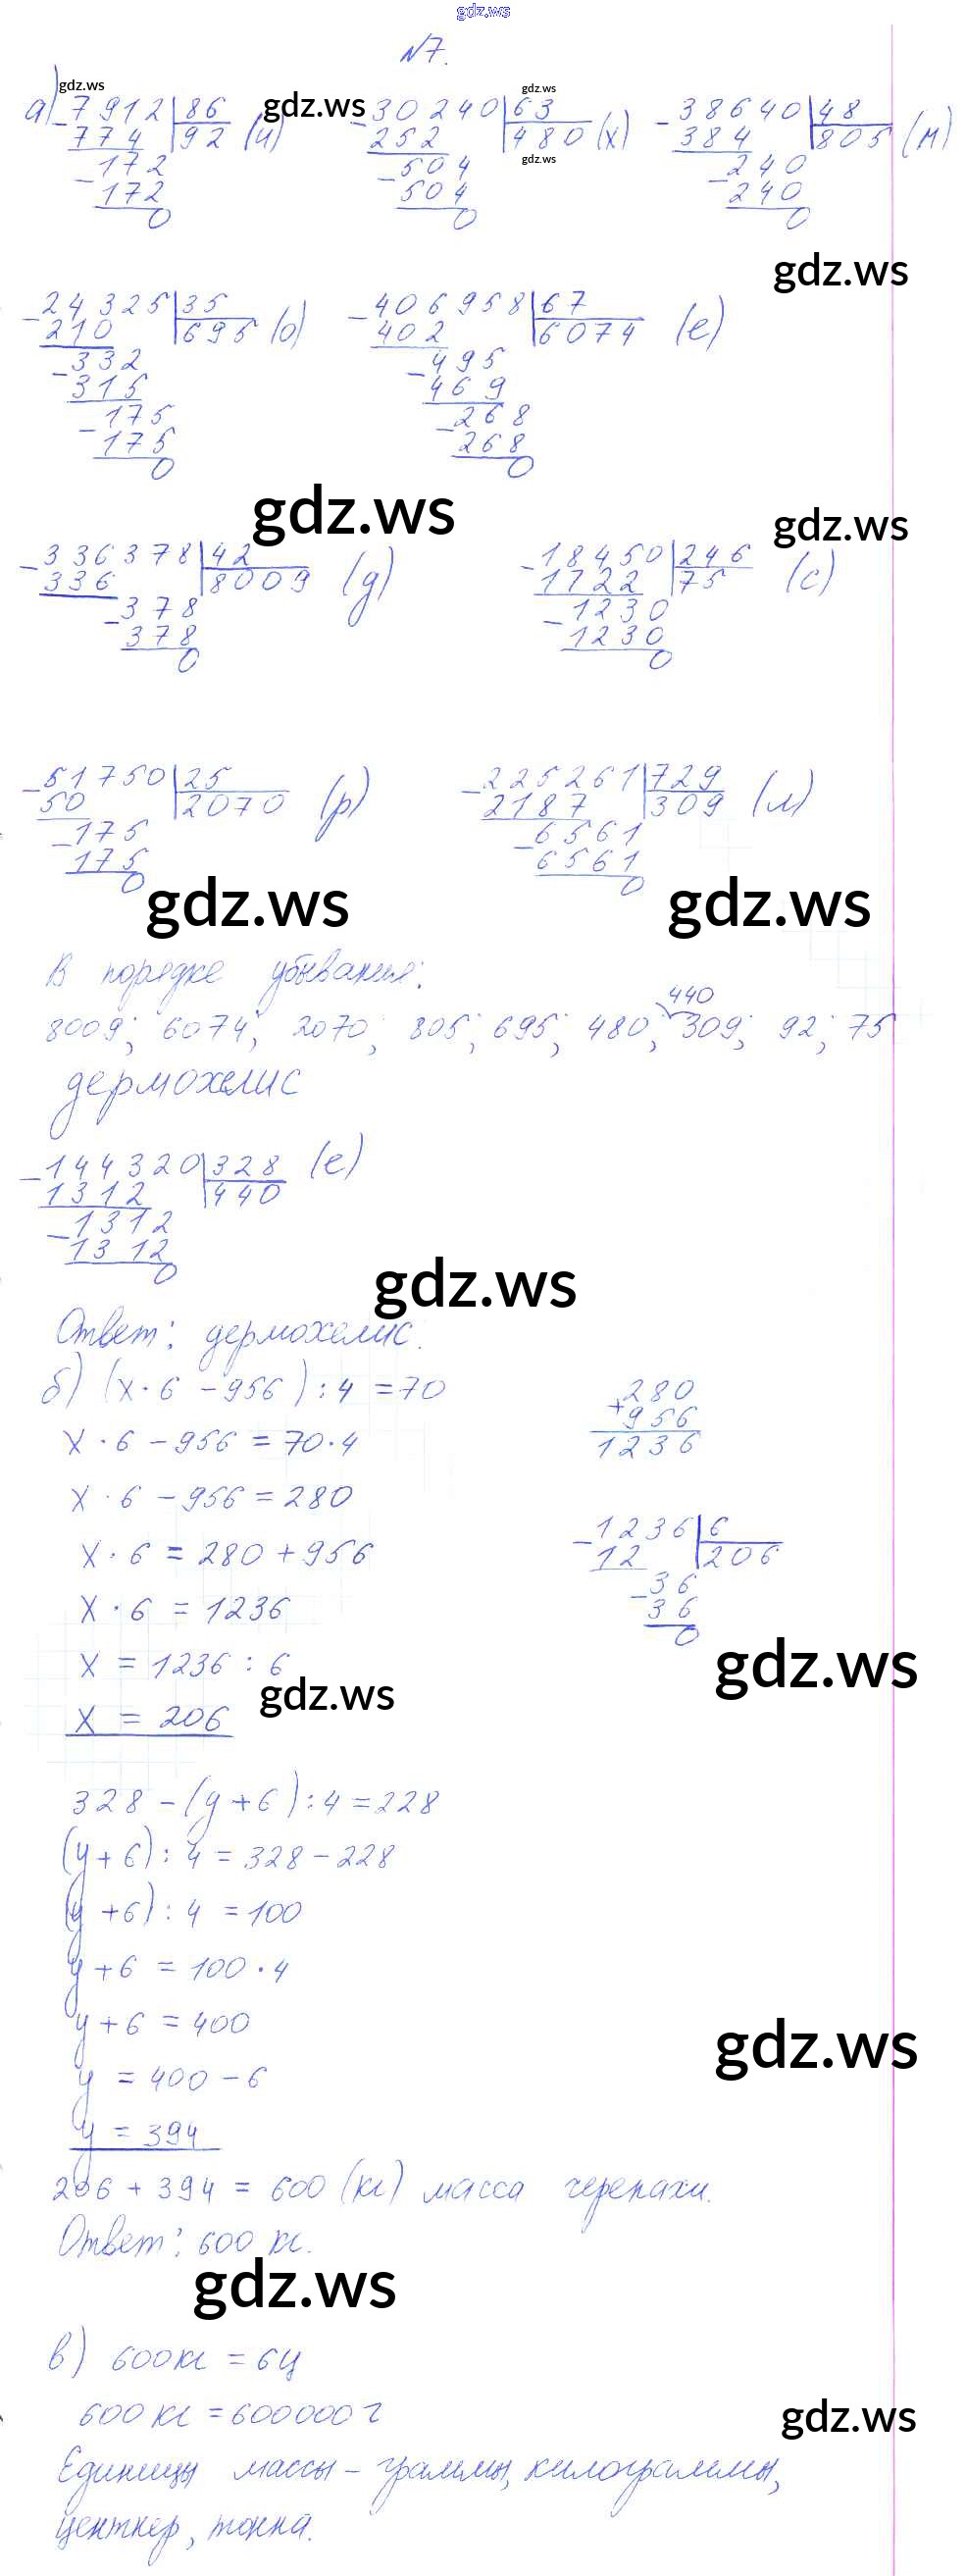 gdz.ws
№7.
а) 7912 | 86 gdz.ws 30240 | 63 gdz.ws 38640 | 48
gdz.ws
- 774 | 92 (и) - 252 | 480 (х) - 384 | 805 (м)
172 504 gdz.ws 240
- 172 - 504 - 240
0 0 0
gdz.ws
- 24325 | 35 - 406958 | 67
210 | 695 (о) 402 | 6074 (е)
- 332 - 495
315 469
- 175 - 268
175 268
0 0
gdz.ws gdz.ws
- 336378 | 42 - 18450 | 246
336 | 8009 (д) 1722 | 75 (с)
- 378 - 1230
378 1230
0 0
- 51750 | 25 - 225261 | 729
50 | 2070 (р) 2187 | 309 (л)
- 175 - 6561
175 6561
0 0
gdz.ws gdz.ws
В порядке убывания:
440
8009; 6074; 2070; 805; 695; 480; 309; 92; 75
дермохелис
- 144320 | 328 (е)
1312 | 440
- 1312
1312
0
gdz.ws
Ответ: дермохелис.
б) (x · 6 - 956) : 4 = 70 280
x · 6 - 956 = 70 · 4 + 956
1236
x · 6 - 956 = 280
x · 6 = 280 + 956 - 1236 | 6
12 | 206
x · 6 = 1236 - 36
36
0
x = 1236 : 6 gdz.ws
gdz.ws
x = 206
328 - (y + 6) : 4 = 228
(y + 6) : 4 = 328 - 228
(y + 6) : 4 = 100
y + 6 = 100 · 4
y + 6 = 400
gdz.ws
y = 400 - 6
y = 394
206 + 394 = 600 (кг) масса черепахи.
Ответ: 600 кг.
gdz.ws
в) 600 кг = 6 ц
600 кг = 600000 г
gdz.ws
Единицы массы - граммы, килограммы,
центнер, тонна.